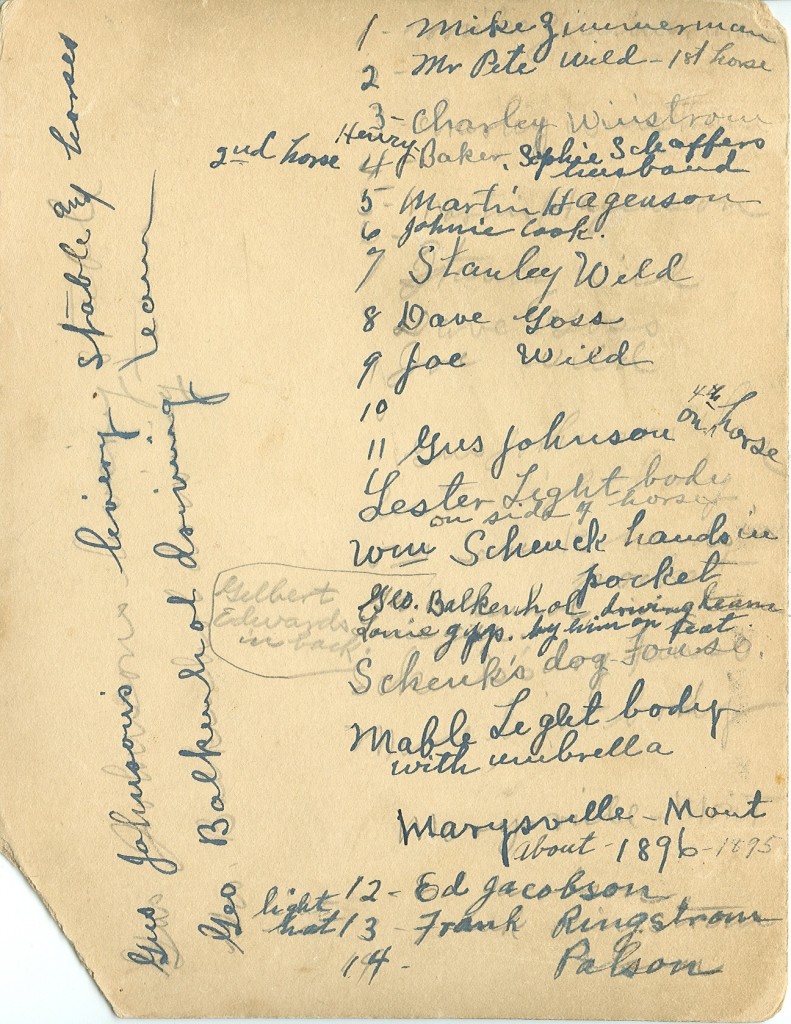 1 - Mike Zimmerman
2 Mr Pete Wild - 1st horse
3 - Charley Winstrom
2nd horse Henry
4 - Baker, Sophie Schaffers
husband
5 Martin Hagenson
6 Johnie Cook.
7 Stanley Wild
8 Dave Goss
9 Joe Wild
10
11 Gus Johnson on 4th horse
Lester Light body
on side of horse
Wm Schenck hands in
pocket
Geo. Balkenhol driving team
Lonie by him on seat.
Gilbert
Edwards
in back.
Schenk's dog
Mable Light body
with umbrella
Marysville - Mont
About - 1896 - 1895
12 - Ed Jacobson
light
hat 13 - Frank Ringstrom
14 - Palson
Gus Johnsons livery Stable and horses
Geo Balkenhol driving team